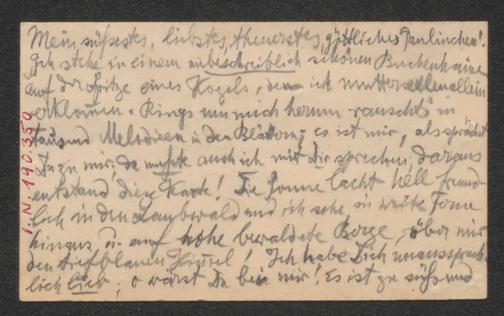 Mein süßestes, liebstes, theuerstes, göttliches Paulinchen!
Ich stehe in einem unbeschreiblich schönen Buchenhaine
auf der Spitze eines Kogels, den ich mutterseelenallein
erklommen. Rings um mich herum rauscht's in
tausend Melodieen in den Blättern; es ist mir, als sprächst
Du zu mir, da mußte auch ich mit Dir sprechen, daraus
entstand diese Karte! Die Sonne lacht hell freund-
lich in den Laubwald und ich sehe in weite Ferne
hinaus, u. auf hohe bewaldete Berge, über mir
den tiefblauen Himmel! Ich habe Dich unaussprech-
lich lieb; o wärst Du bei mir! Es ist zu süß und
I.N. 190.350